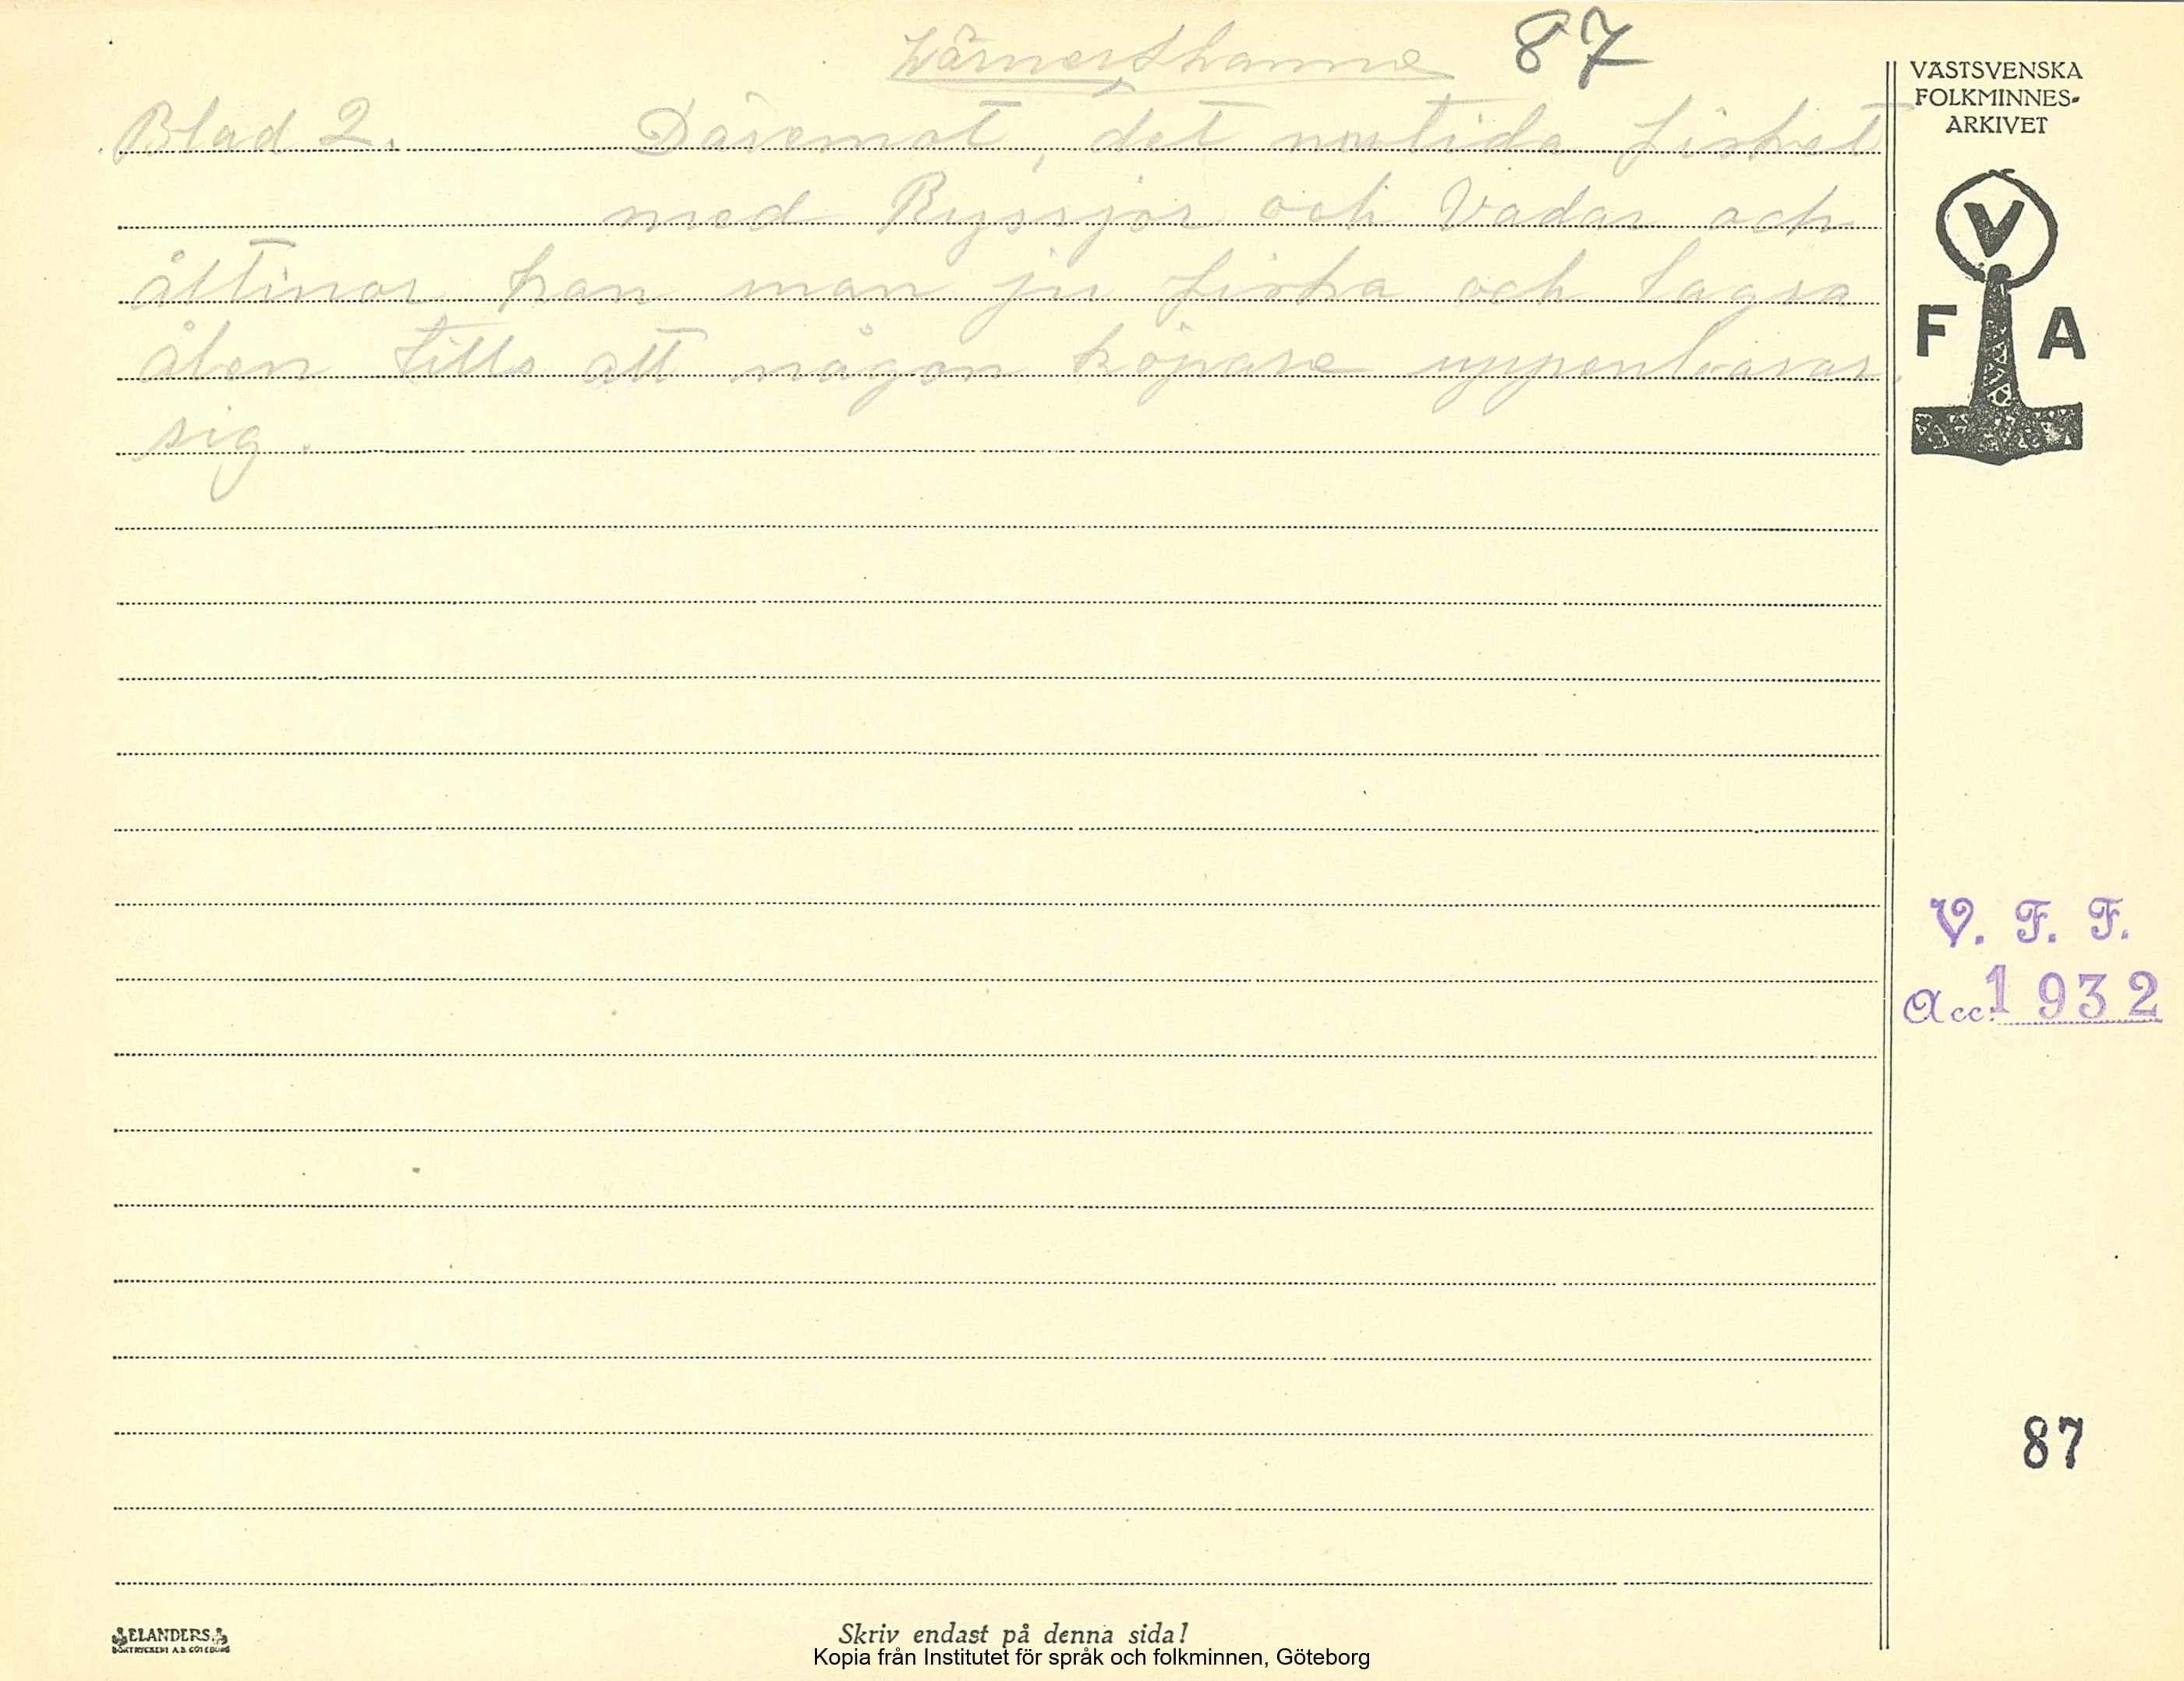 Wärmershamne 87
Blad 2. Däremot, det nutida fisket
med Ryssjor och Vadar och
åltinor kan man ju fiska och lagra
ålen tills att någon köpare uppenbarar
sig.
VÄSTSVENSKA
FOLKMINNES-
ARKIVET
V
F A
V. F. F.
Acc. 1932
87
ELANDERS
BOKTRYCKERI A.B. GÖTEBORG
Skriv endast på denna sida!
Kopia från Institutet för språk och folkminnen, Göteborg